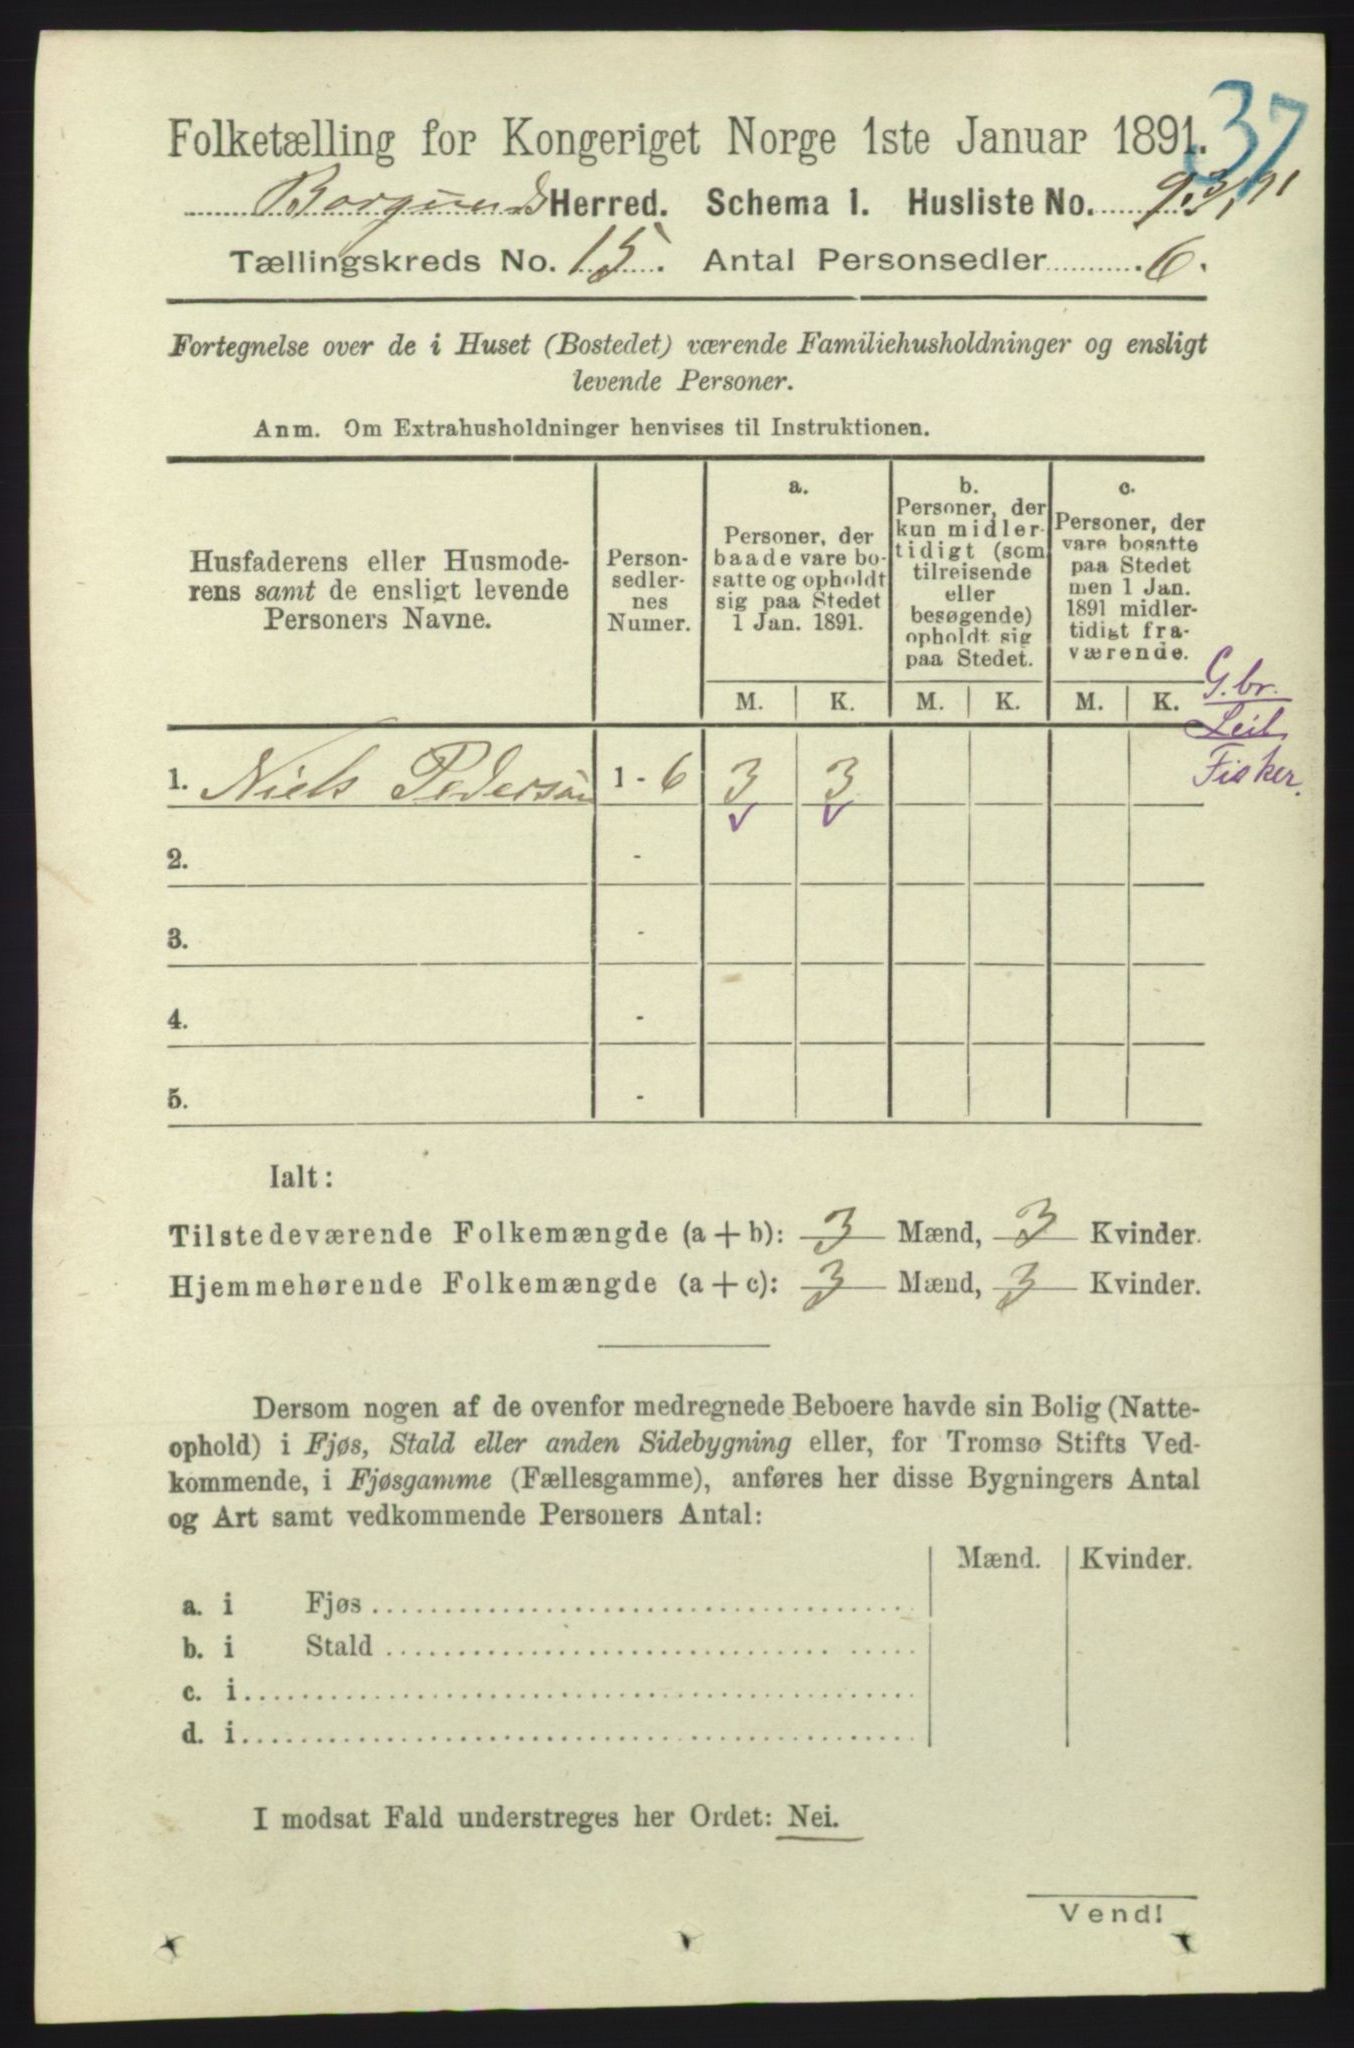 37
Folketælling for Kongeriget Norge 1ste Januar 1891.
Borgund Herred. Schema 1. Husliste No.
Tællingskreds No. 15. Antal Personsedler 6.
Fortegnelse over de i Huset (Bostedet) værende Familiehusholdninger og ensligt
levende Personer.
Anm. Om Extrahusholdninger henvises til Instruktionen.
Husfaderens eller Husmode-
rens samt de ensligt levende
Personers Navne.
Person-
sedler-
nes
Numer.
a.
Personer, der
baade vare bo-
satte og opholdt
sig paa Stedet
1 Jan. 1891.
b.
Personer, der
kun midler-
tidigt (som
tilreisende
eller
besøgende)
opholdt sig
paa Stedet.
c.
Personer, der
vare bosatte
paa Stedet
men 1 Jan.
1891 midler-
tidigt fra-
værende.
M. K. M. K. M. K.
G.br.
Leil
Fisker.
1. Niels Pedersen 1 - 6 3 3
2. -
3. -
4. -
5. -
Ialt:
Tilstedeværende Folkemængde (a + b): 3 Mænd, 3 Kvinder.
Hjemmehørende Folkemængde (a + c): 3 Mænd, 3 Kvinder.
Dersom nogen af de ovenfor medregnede Beboere havde sin Bolig (Natte-
ophold) i Fjøs, Stald eller anden Sidebygning eller, for Tromsø Stifts Ved-
kommende, i Fjøsgamme (Fællesgamme), anføres her disse Bygningers Antal
og Art samt vedkommende Personers Antal:
Mænd. Kvinder.
a. i Fjøs
b. i Stald
c. i
d. i
I modsat Fald understreges her Ordet: Nei.
Vend!